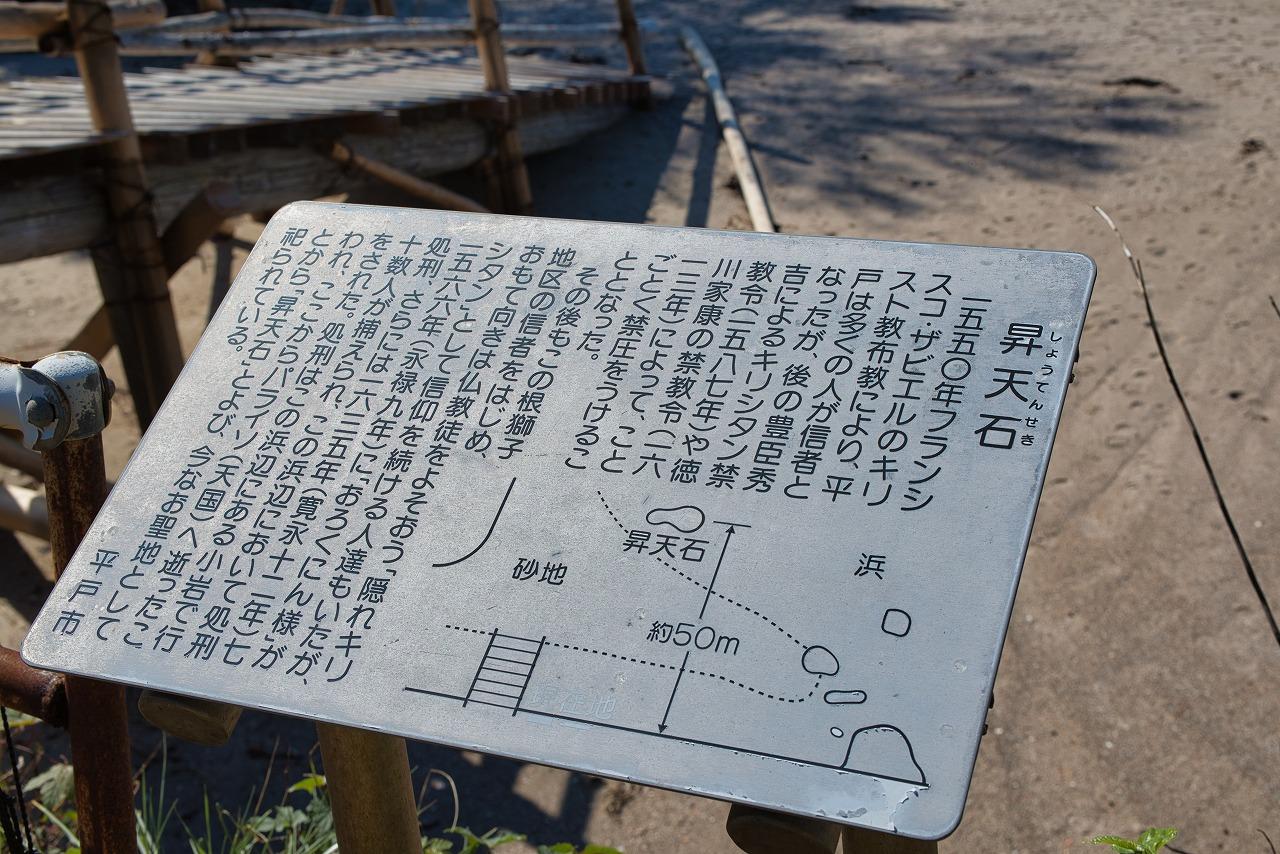 昇天石
しょうてんせき
一五五〇年フランシ
スコ・ザビエルのキリ
スト教布教により、平
戸は多くの人が信者と
なったが、後の豊臣秀
吉によるキリシタン禁
教令(一五八七年)や徳
川家康の禁教令(一六
一二年)によって、こと
ごとく禁庄をうけるこ
ととなった。
その後もこの根獅子
地区の信者をはじめ、
おもて向きは仏教徒をよそおう「隠れキリ
シタン」として信仰を続ける人達もいたが、
一五六六年(永禄九年)に「おろくにん様」が
処刑、さらには一六三五年(寛永十二年)七
十数人が捕えられ、この浜辺において処刑
をされた。処刑はこの浜辺にある小岩で行
われ、ここからパライソ(天国)へ逝ったこ
とから「昇天石」とよび、今なお聖地として
祀られている。
平戸市
昇天石
浜
砂地
約50m
現在地